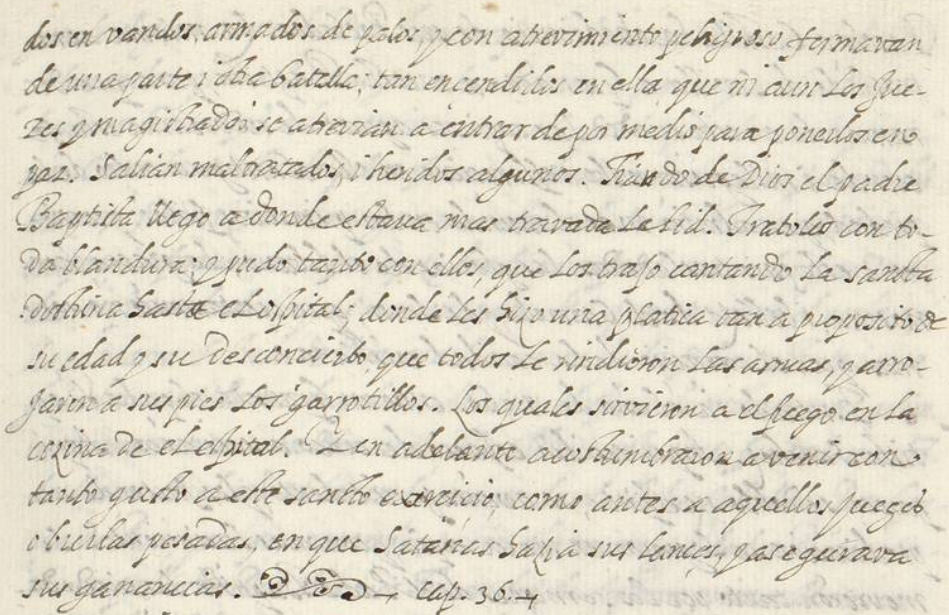 dos en vandos, armados de palos, y con atrevimiento peligroso formavan
de una parte i otra batalla; tan encendidos en ella que ni aun los Jue-
zes y magistrados se atrevian a entrar de por medio para ponerlos en
paz. Salian maltratados, i heridos algunos. Fiando de Dios el padre
Baptista llego a donde estava mas travada la lid. Tratolos con to-
da blandura; y pudo tanto con ellos, que los trajo cantando la sancta
dothrina hasta el ospital; donde les hizo una platica tan a proposito de
su edad y su desconcierto, que todos le rindieron las armas, y arro-
jaron a sus pies los garrotillos. Los quales sirvieron a el fuego en la
cozina de el ospital. Y en adelante acostumbraron a venir con
tanto gusto a este sancto exercicio, como antes a aquellos juegos
o burlas pesadas, en que Satanas hazia sus lances, y asegurava
sus ganancias. Cap. 36.